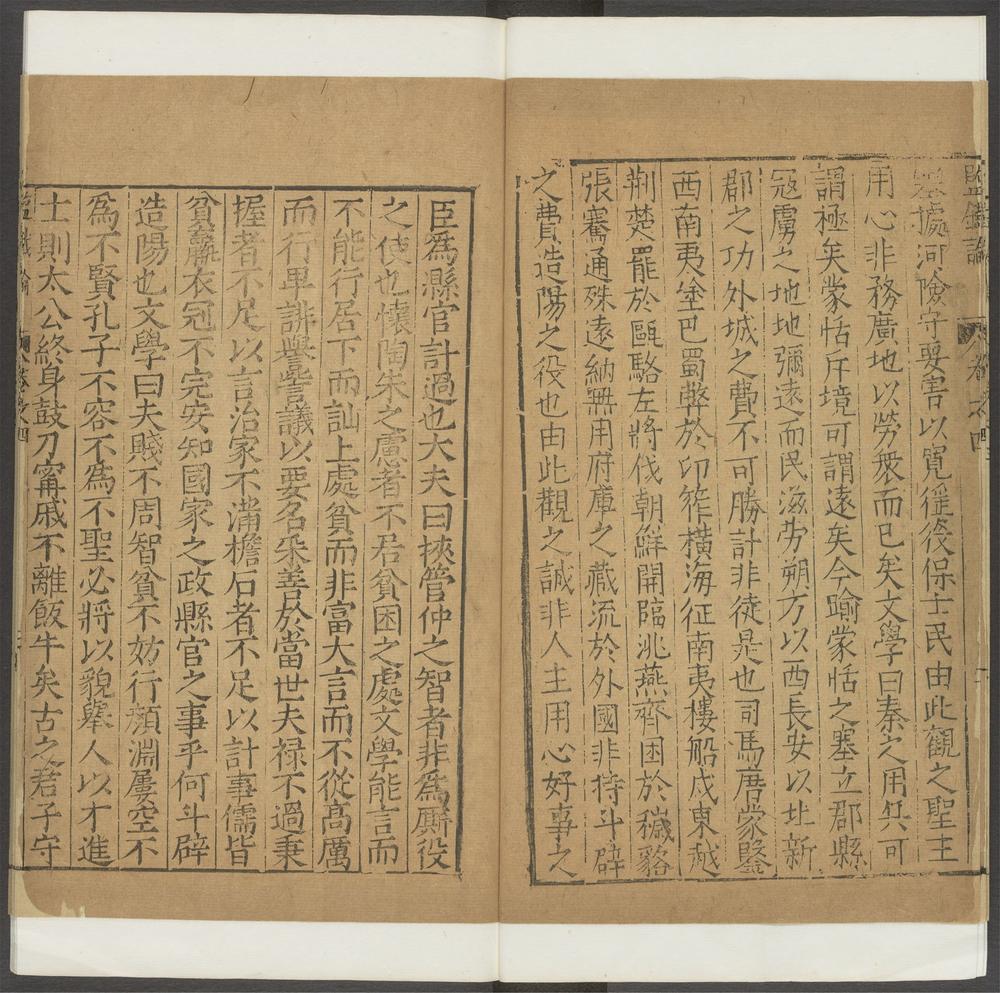 鹽鐵論 卷之四
塞據河險守要害以寬徭役保士民由此觀之聖主
用心非務廣地以勞衆而已矣文學曰秦之用兵可
謂極矣蒙恬斥境可謂遠矣今踰蒙恬之塞立郡縣
寇虜之地地彌遠而民滋勞朔方以西長安以北新
郡之功外城之費不可勝計非徒是也司馬唐蒙鑿
西南夷塗巴蜀弊於卭筰横海征南夷樓船戍東越
荆楚罷於甌駱左將伐朝鮮開臨洮燕齊困於穢貉
張騫通殊遠納無用府庫之藏流於外國非特斗辟
之費造陽之役也由此觀之誠非人主用心好事之
臣爲縣官計過也大夫曰挾管仲之智者非爲厮役
之使也懷陶朱之慮者不居貧困之處文學能言而
不能行居下而訕上處貧而非富大言而不從高厲
而行卑誹譽訾議以要名采善於當世夫禄不過秉
握者不足以言治家不滿檐石者不足以計事儒皆
貧羸衣冠不完安知國家之政縣官之事乎何斗辟
造陽也文學曰夫賤不周智貧不妨行顔淵屢空不
爲不賢孔子不容不爲不聖必將以貌舉人以才進
士則太公終身鼓刀甯戚不離飯牛矣古之君子守